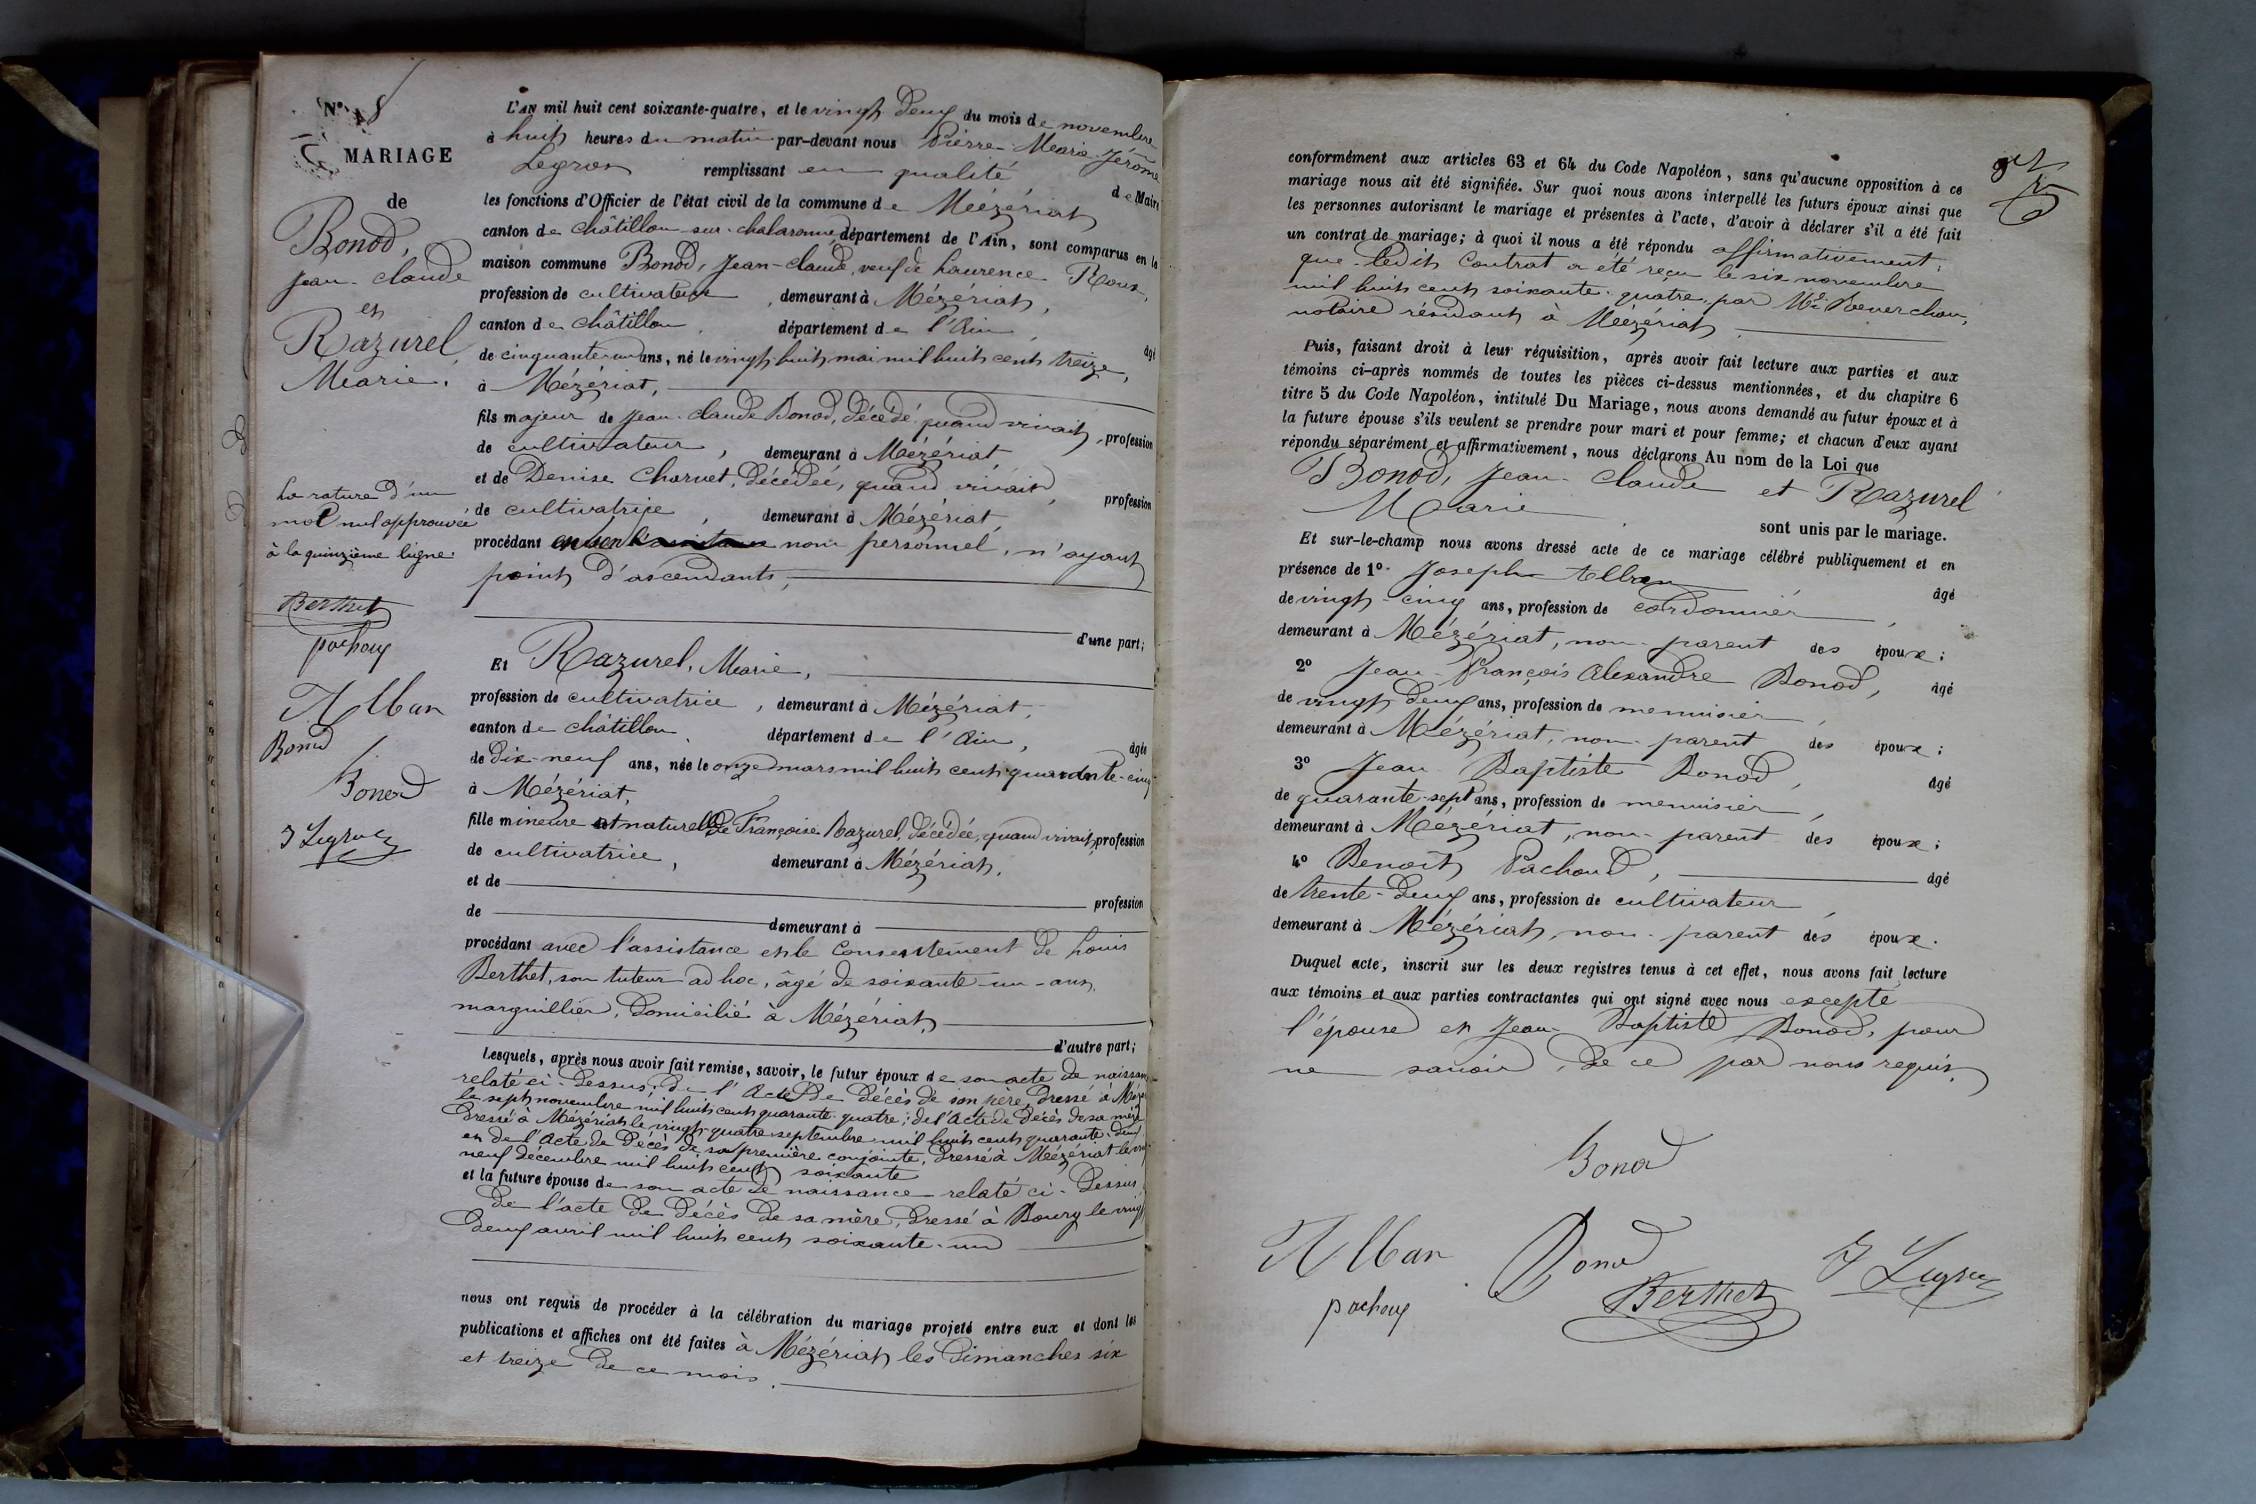 N° 18
MARIAGE
de
Bonod,
Jean-Claude
et
Razurel,
Marie.
La rature d'un
mot nul approuvée
à la quinzième ligne.
Berthet
pachoux
Alban
Bonod
Bonod
J Legros
L'AN mil huit cent soixante-quatre, et le vingt deux du mois de novembre
à huit heures du matin par-devant nous Pierre Marie Jérôme
Legros remplissant en qualité de Maire
les fonctions d'Officier de l'état civil de la commune de Mézériat
canton de Châtillon-sur-Chalaronne département de l'Ain, sont comparus en la
maison commune Bonod, Jean-Claude, veuf de Laurence Roux,
profession de cultivateur, demeurant à Mézériat,
canton de Châtillon, département de l'Ain, âgé
de cinquante-un ans, né le vingt-huit mai mil huit cent treize,
à Mézériat,
fils majeur de Jean-Claude Bonod, décédé, quand vivait, profession
de cultivateur, demeurant à Mézériat
et de Denise Charvet, décédée, quand vivait, profession
de cultivatrice, demeurant à Mézériat,
procédant en son nom personnel, n'ayant
point d'ascendants,
d'une part;
Et Razurel, Marie,
profession de cultivatrice, demeurant à Mézériat,
canton de Châtillon, département de l'Ain, âgée
de dix-neuf ans, née le onze mars mil huit cent quarante-cinq
à Mézériat,
fille mineure et naturelle de Françoise Razurel, décédée, quand vivait, profession
de cultivatrice, demeurant à Mézériat,
et de profession
de demeurant à
procédant avec l'assistance et le consentement de Louis
Berthet, son tuteur ad hoc, âgé de soixante-un-ans,
marguillier, domicilié à Mézériat
d'autre part;
Lesquels, après nous avoir fait remise, savoir, le futur époux de son acte de naissance
relaté ci-dessus; de l'Acte de décès de son père, dressé à Mézé
le sept novembre mil huit cent quarante-quatre; de l'Acte de décès de sa mère
dressé à Mézériat le vingt-quatre septembre mil huit cent quarante-deux
et de l'Acte de décès de sa première conjointe, dressé à Mézériat le vingt
neuf décembre mil huit cent soixante
et la future épouse de son acte de naissance relaté ci-dessus
de l'acte de décès de sa mère, dressé à Bourg le vingt
deux avril mil huit cent soixante-un
nous ont requis de procéder à la célébration du mariage projeté entre eux et dont les
publications et affiches ont été faites à Mézériat les dimanches six
et treize de ce mois.
conformément aux articles 63 et 64 du Code Napoléon, sans qu'aucune opposition à ce
mariage nous ait été signifiée. Sur quoi nous avons interpellé les futurs époux ainsi que
les personnes autorisant le mariage et présentes à l'acte, d'avoir à déclarer s'il a été fait
un contrat de mariage; à quoi il nous a été répondu affirmativement;
que ledit Contrat a été reçu le six novembre
mil huit cent soixante-quatre, par
notaire résidant à Mézériat
Puis, faisant droit à leur réquisition, après avoir fait lecture aux parties et aux
témoins ci-après nommés de toutes les pièces ci-dessus mentionnées, et du chapitre 6
titre 5 du Code Napoléon, intitulé Du Mariage, nous avons demandé au futur époux et à
la future épouse s'ils veulent se prendre pour mari et pour femme; et chacun d'eux ayant
répondu séparément et affirmativement, nous déclarons Au nom de la Loi que
Bonod, Jean-Claude et Razurel
Marie sont unis par le mariage.
Et sur-le-champ nous avons dressé acte de ce mariage célébré publiquement et en
présence de 1° Joseph Alban âgé
de vingt-cinq ans, profession de cordonnier,
demeurant à Mézériat, non-parent des époux;
2° Jean-François Alexandre Bonod, âgé
de vingt deux ans, profession de menuisier,
demeurant à Mézériat, non-parent des époux;
3° Jean Baptiste Bonod, âgé
de quarante-sept ans, profession de menuisier,
demeurant à Mézériat, non-parent des époux;
4° Benoît Pachoud, âgé
de trente-deux ans, profession de cultivateur
demeurant à Mézériat, non-parent des époux.
Duquel acte, inscrit sur les deux registres tenus à cet effet, nous avons fait lecture
aux témoins et aux parties contractantes qui ont signé avec nous excepté
l'épouse et Jean-Baptiste Bonod, pour
ne savoir, de ce par nous requis.
Bonod
Alban
Bonod
J Legros
pachoux
Berthet